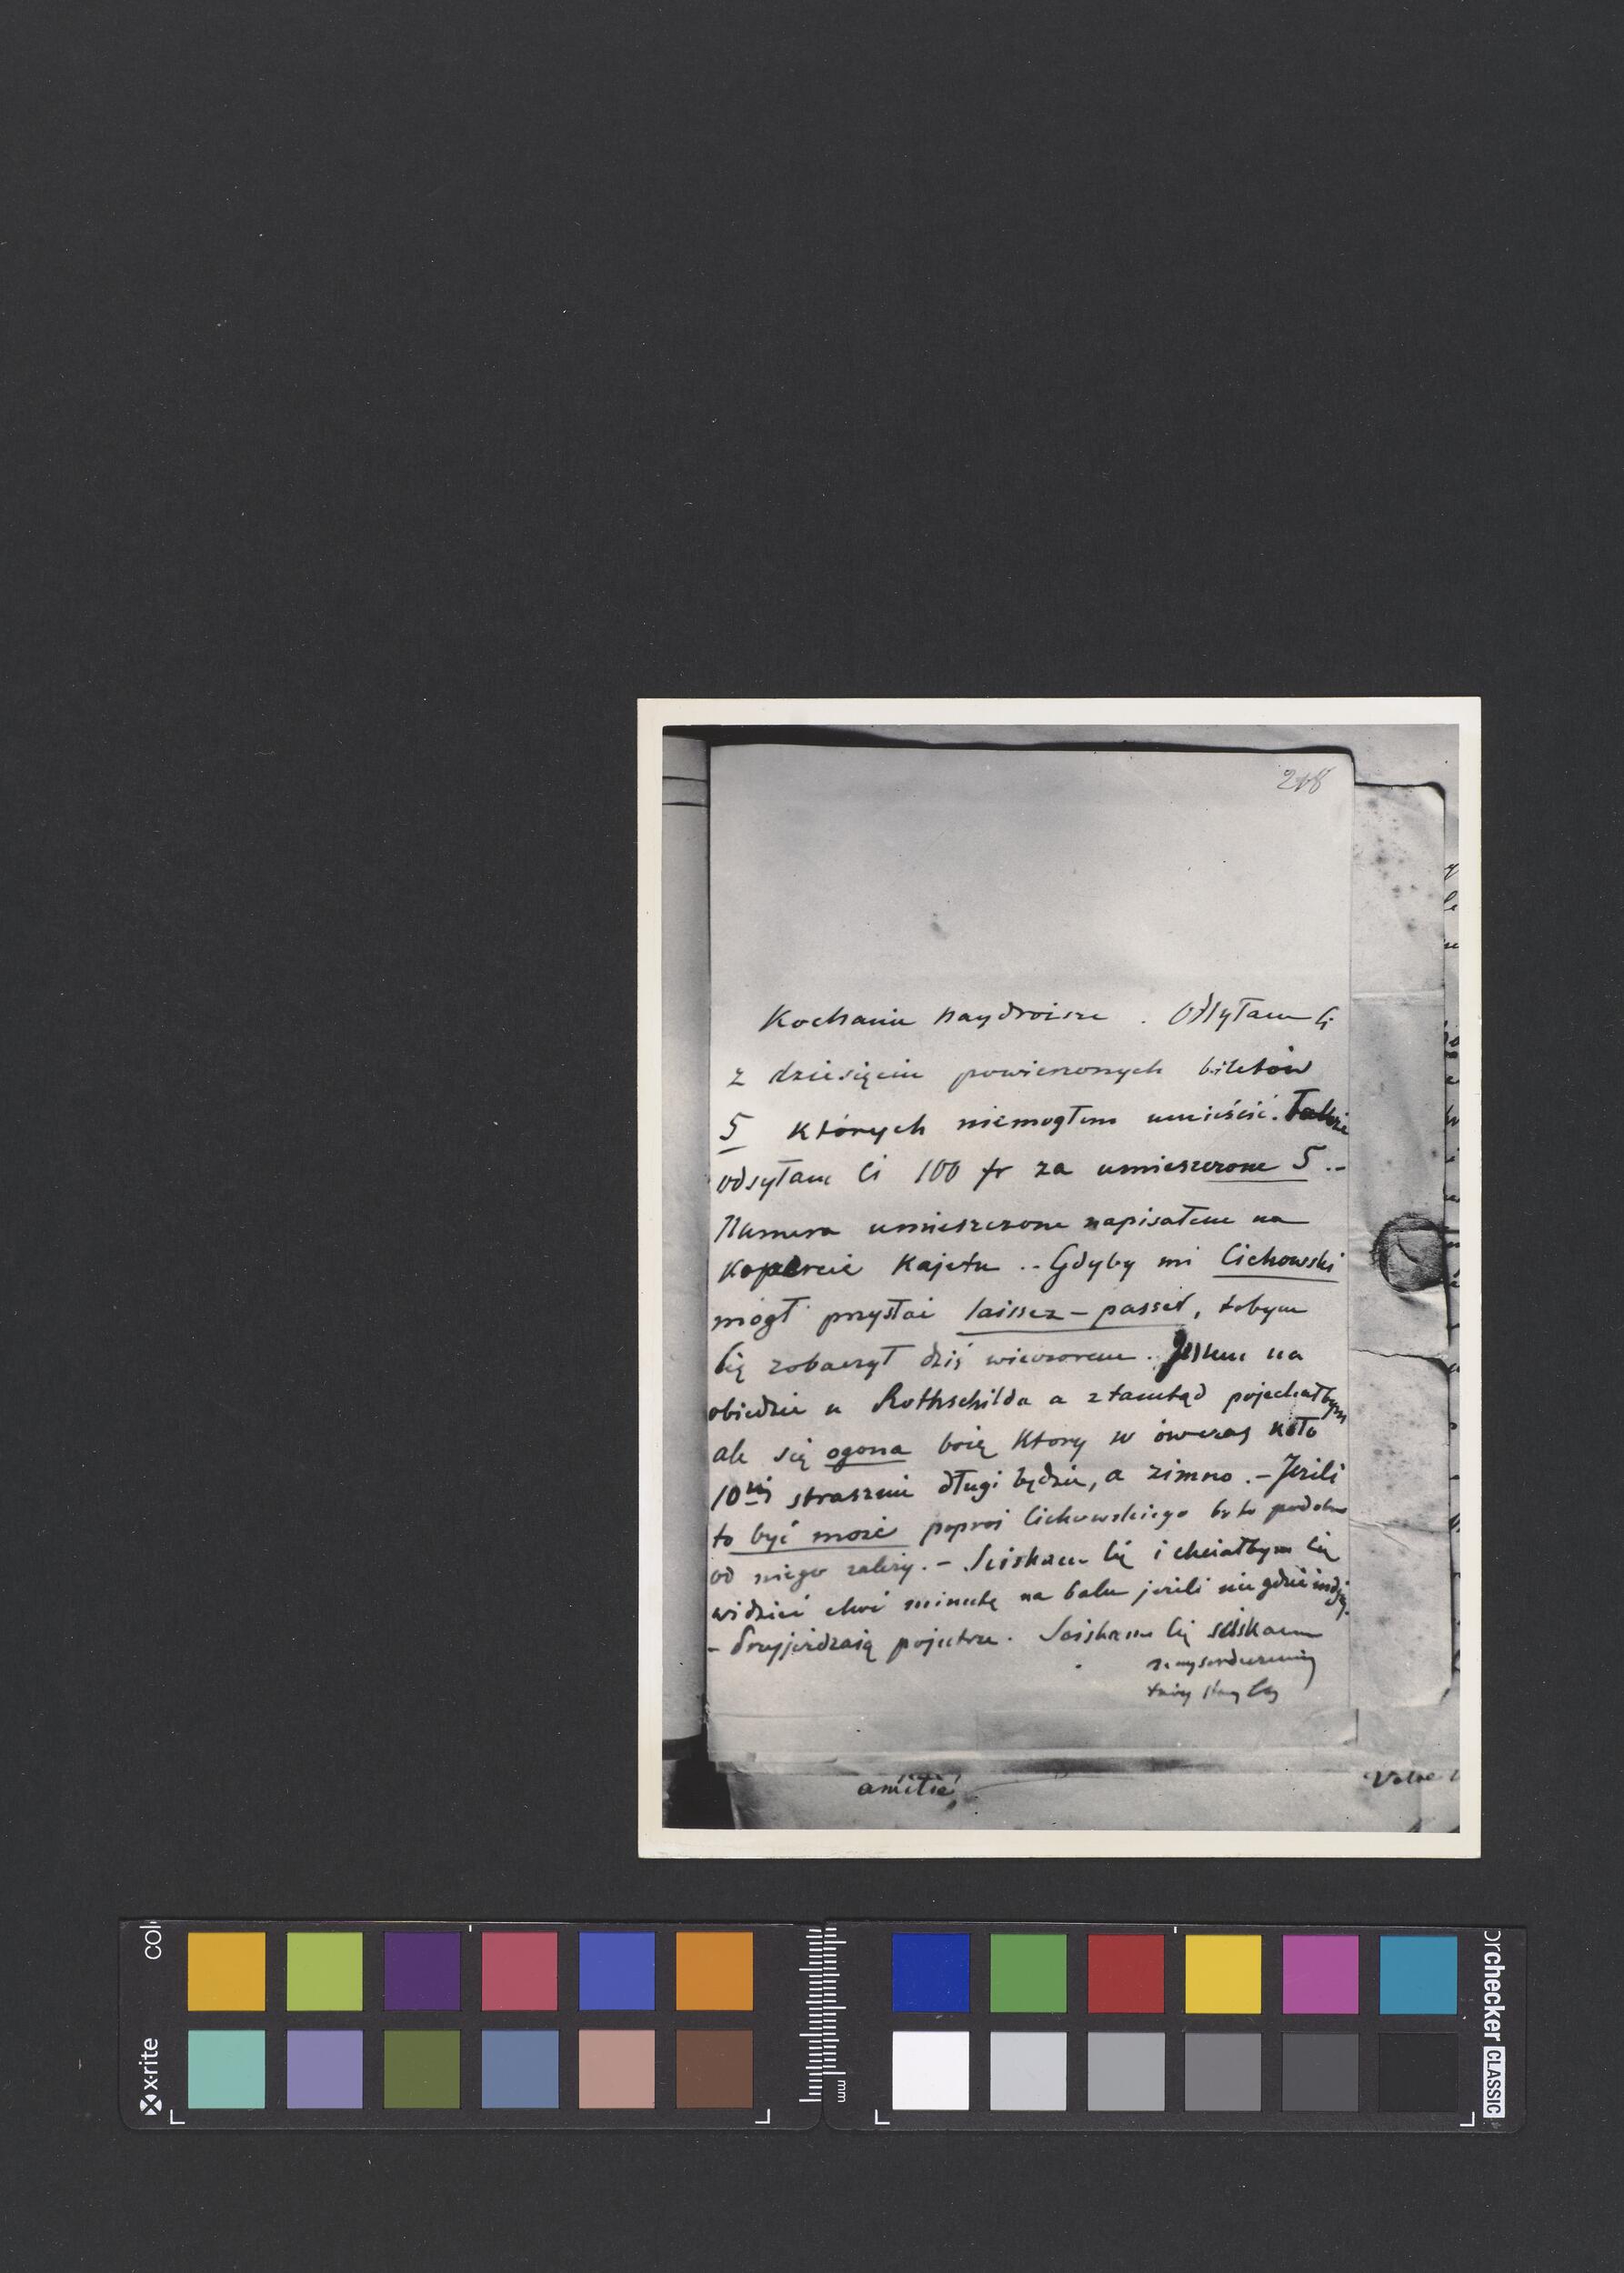 218
Kochanie naydroższe . Odsyłam Ci
z dziesięciu powierzonych biletów
5 których niemogłem umieścić. Także
odsyłam Ci 100 fr za umieszczone 5 ..
Numera umieszczone napisałem na
kopercie kajetu .. Gdyby mi Cichowski
mógł przysłać laissez-passer, tobym
Cię zobaczył dziś wieczorem. Jestem na
obiedzie u Rothschilda a ztamtąd pojechałbym
ale się ogona boię który w ówczas koło
10tej strasznie długi będzie, a zimno. - Jeżeli
to być może poproś Cichowskiego bo to podobno
od niego zależy. - Sciskam Cię i chciałbym Cię
widzieć choć minutę na balu jeżeli nie gdzieindziej.
- Przyjeżdzają pojutrze. Sciskam Cię sciskam
nayserdeczniej
twój stary
amitié,
Colo
rchecker CLASSIC
x-rite
mm